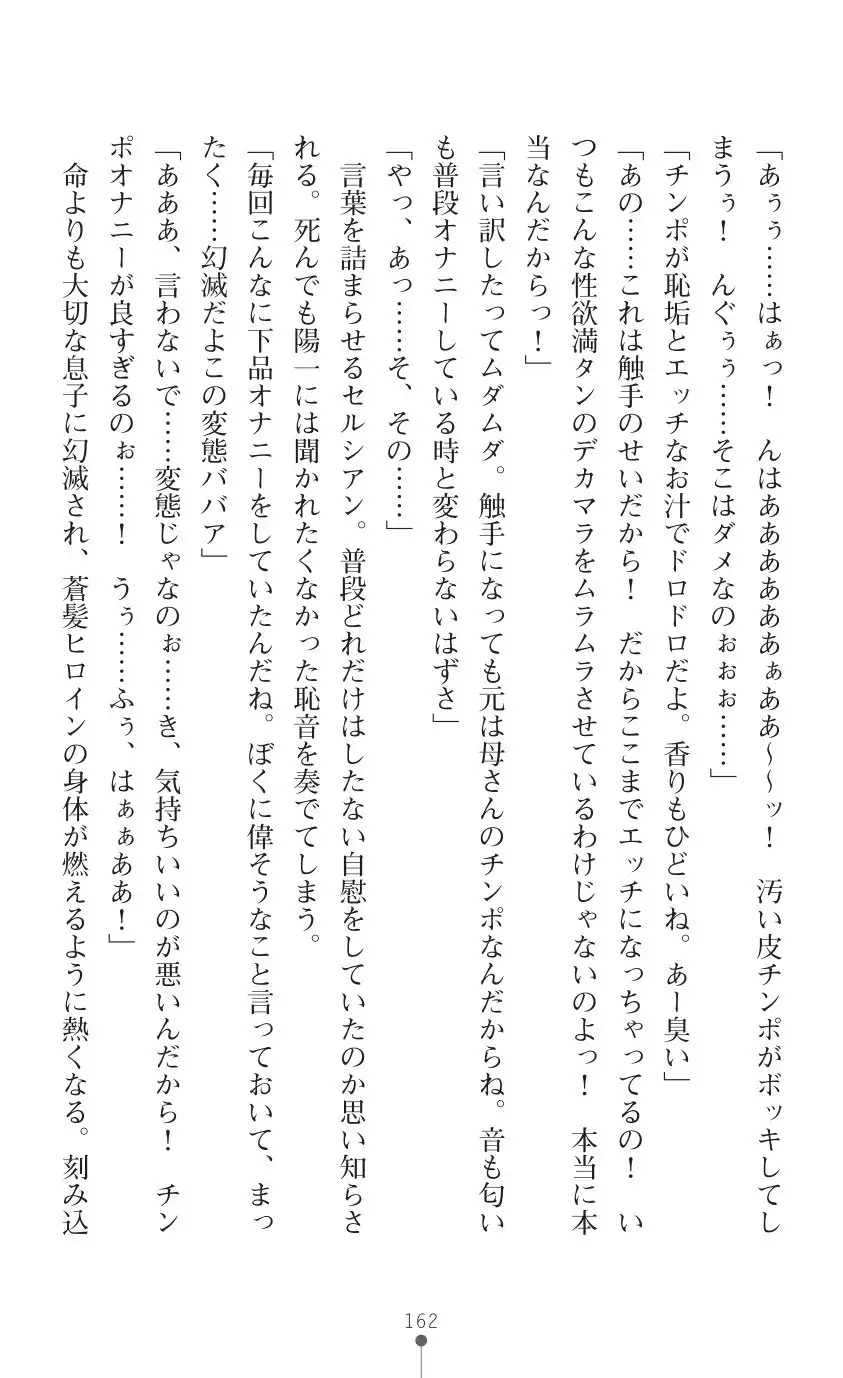 「あぅぅ……はぁっ！　んはああああああぁああ～～ッ！　汚い皮チンポがボッキしてし
まうぅ！　んぐぅぅ……そこはダメなのぉぉぉ……」
「チンポが恥垢とエッチなお汁でドロドロだよ。香りもひどいね。あー臭い」
「あの……これは触手のせいだから！　だからここまでエッチになっちゃってるの！　い
つもこんな性欲満タンのデカマラをムラムラさせているわけじゃないのよっ！　本当に本
当なんだからっ！」
「言い訳したってムダムダ。触手になっても元は母さんのチンポなんだからね。音も匂い
も普段オナニーしている時と変わらないはずさ」
「やっ、あっ……そ、その……」
　言葉を詰まらせるセルシアン。普段どれだけはしたない自慰をしていたのか思い知らさ
れる。死んでも陽一には聞かれたくなかった恥音を奏でてしまう。
「毎回こんなに下品オナニーをしていたんだね。ぼくに偉そうなこと言っておいて、まっ
たく……幻滅だよこの変態ババア」
「あああ、言わないで……変態じゃなのぉ……き、気持ちいいのが悪いんだから！　チン
ポオナニーが良すぎるのぉ……！　うぅ……ふぅ、はぁぁああ！」
　命よりも大切な息子に幻滅され、蒼髪ヒロインの身体が燃えるように熱くなる。刻み込
162